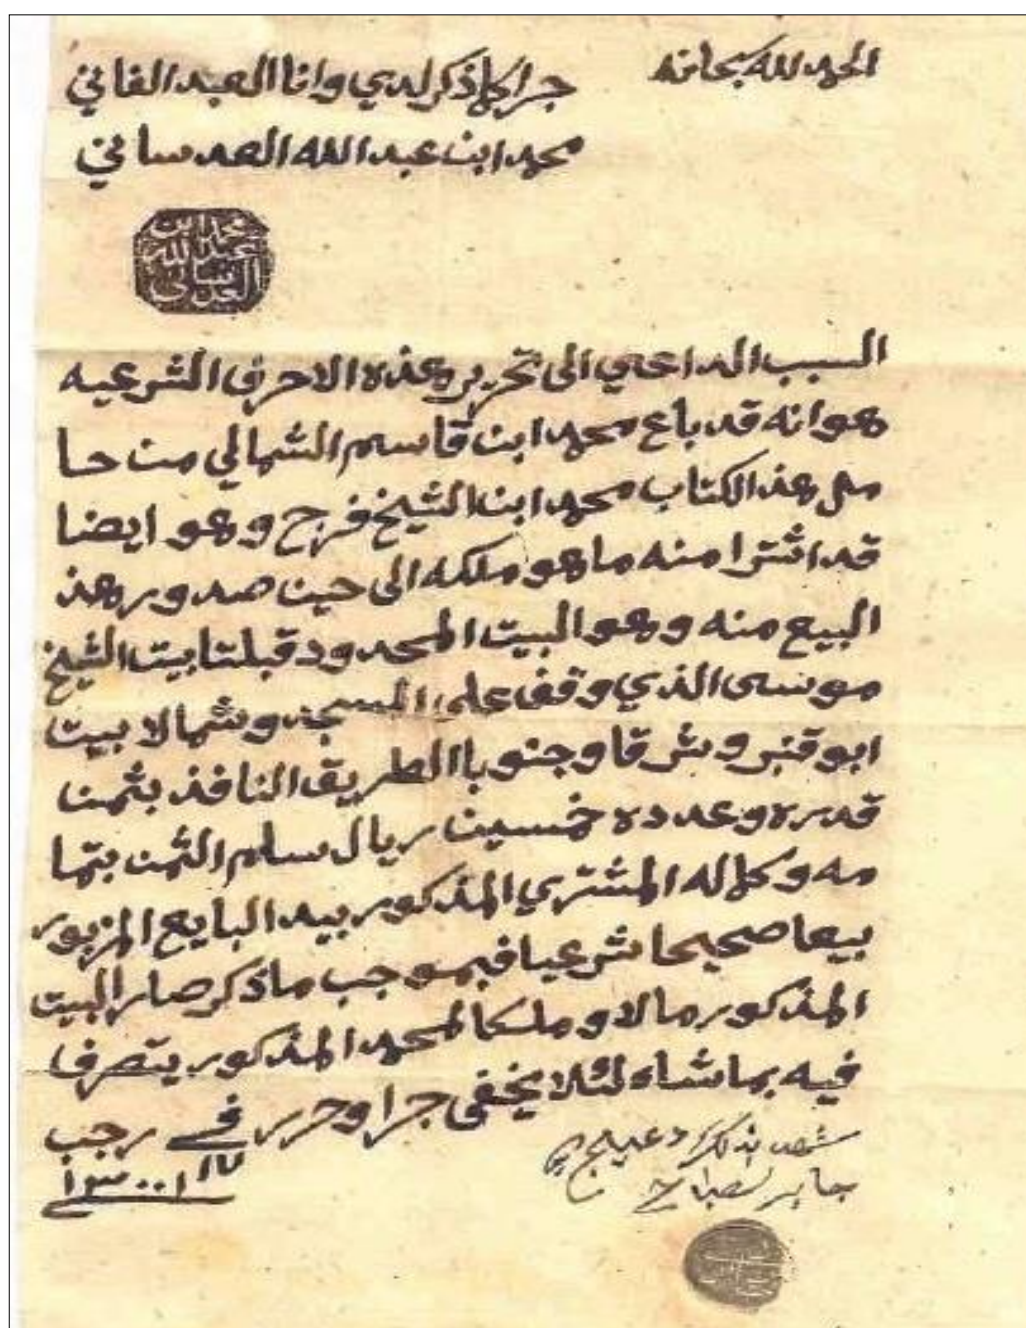 الحمد لله سبحانه
جرا كلما ذكر لدي وانا العبد الفاني
محمد ابن عبد الله العدساني
محمد ابن
عبد الله
العدساني
السبب الداعي الى تحرير هذه الاحرف الشرعيه
هو انه قد باع محمد ابن قاسم الشمالي من حا
مل هذ الكتاب محمد ابن الشيخ فرج وهو ايضا
قد اشترا منه ما هو ملكه الى حين صدور هذ
البيع منه وهو البيت المحدود قبلتا بيت الشيخ
موسى الذي وقف على المسجد وشمالا بيت
ابو قنبر وشرقا وجنوبا الطريق النافذ بثمن
قدره وعدده خمسين ريال سلم الثمن بتما
مه وكماله المشتري المذكور بيد البايع المزبور
بيعا صحيحا شرعيا فبموجب ما ذكر صار البيت
المذكور مالا وملكا لمحمد المذكور يتصرف
فيه بما شاء لئلا يخفى جرا وحرر في رجب
١٧ ١٣٠٠
شهد بذلك دعيج
جابر الصباح